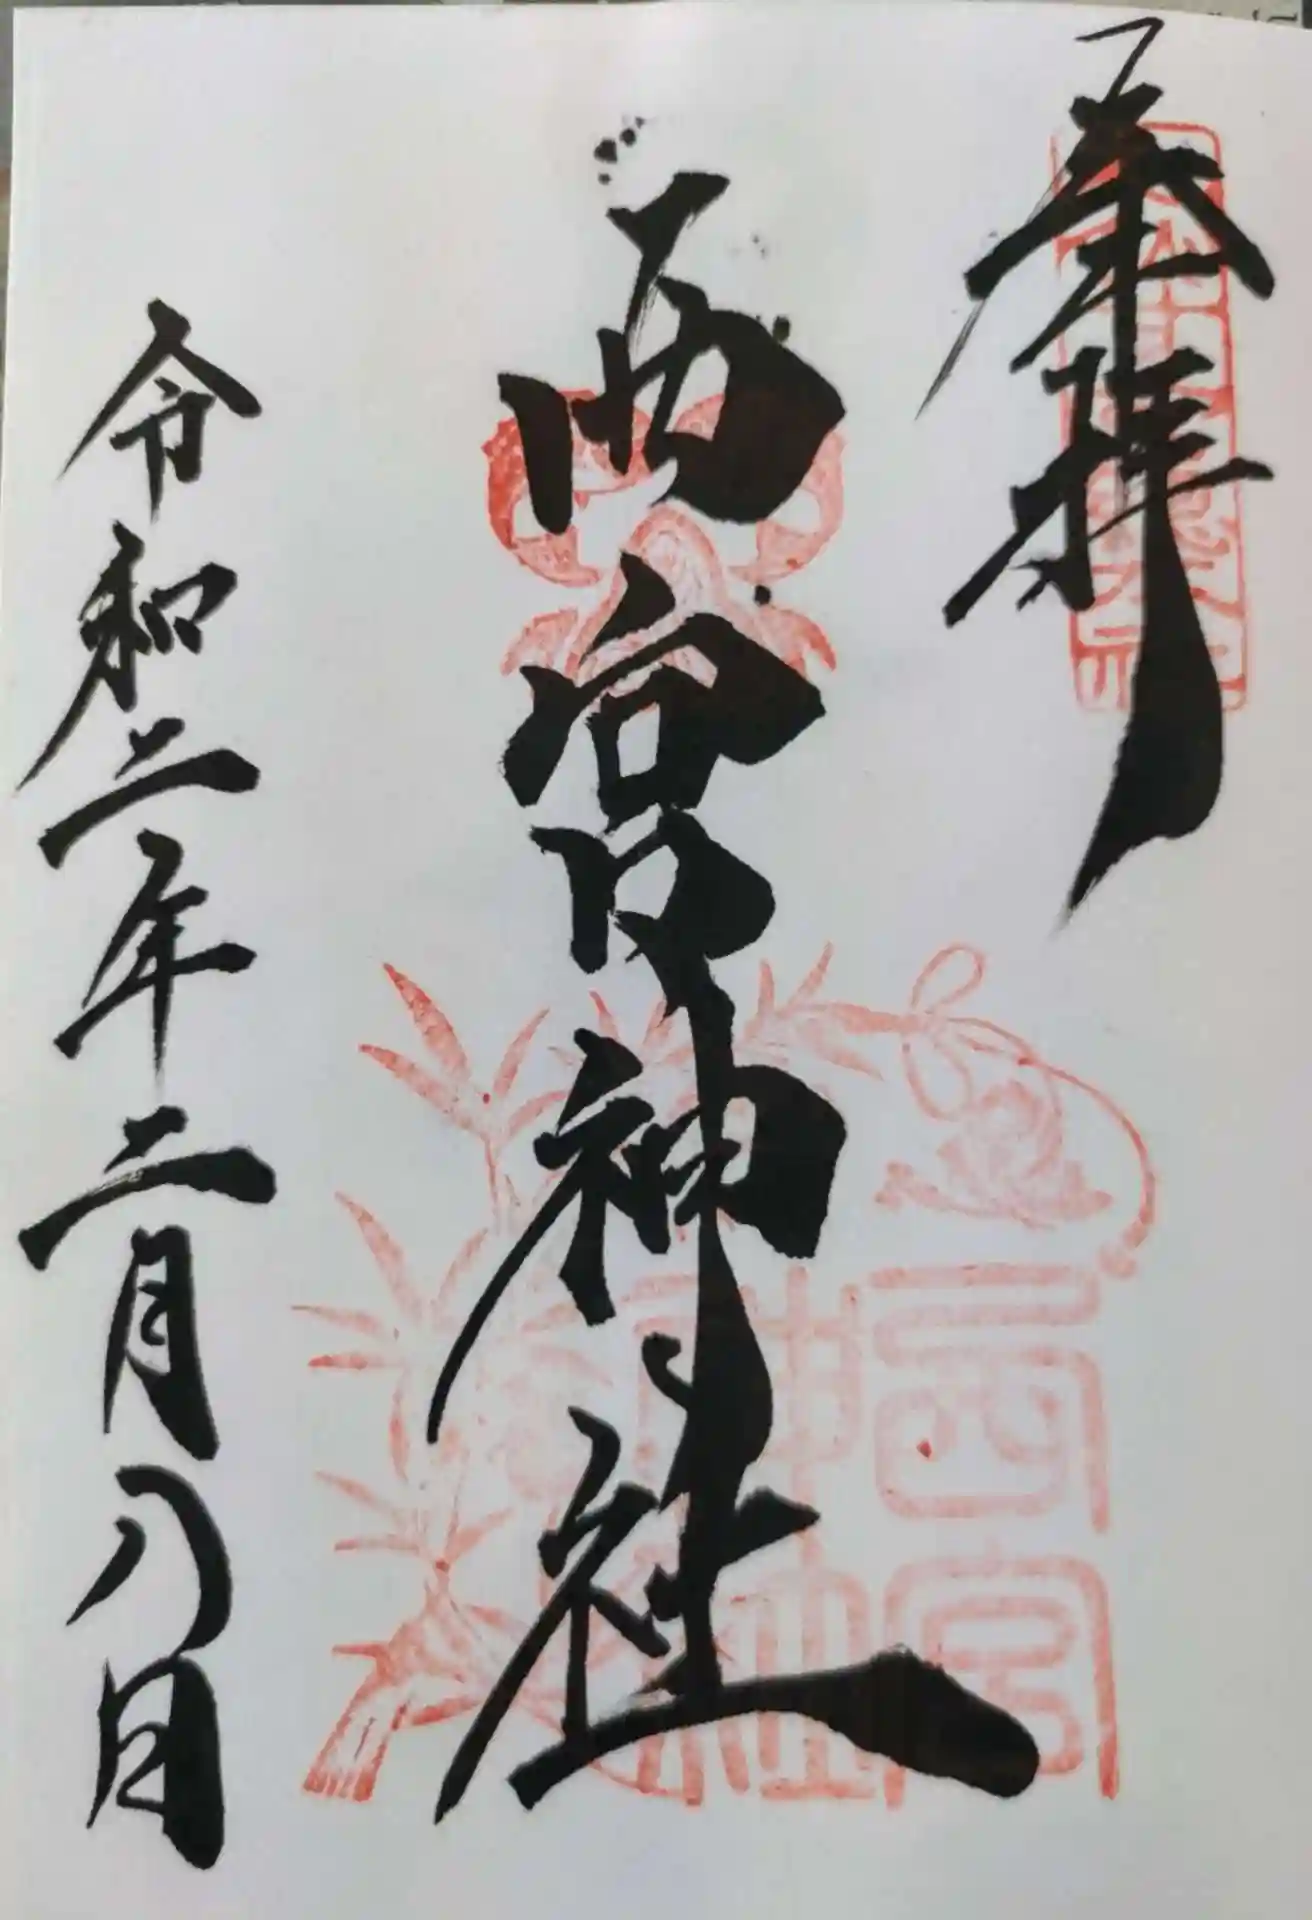 奉拝
西宮神社
令和二年二月八日
西宮
神社